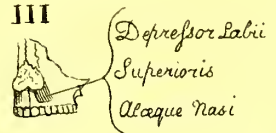 III
Depreſsor Labii
Superioris
Alæque Nasi